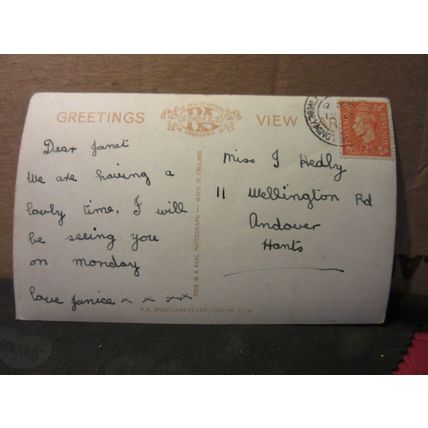 GREETINGS
VIEW
Dear Janet
We are having a
lovly time. I will
be seeing you
on monday
love Janice x x xx
THIS IS A REAL PHOTOGRAPH — MADE IN ENGLAND
Miss J Hedly
11 Wellington Rd
Andover
Hants
R.A. (POSTCARDS) LTD., LONDON